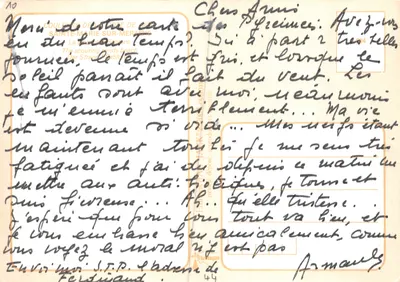 10
Chers Amis
Merci de votre carte des Pyrénées. Avez-vous
eu du beau temps? Ici à part 2 très belles
journées, le temps est gris, et lorsque le
soleil paraît il fait du vent. Les
enfants sont avec moi, néanmoins
je m'ennuie terriblement... Ma vie
est devenue si vide... Mes nerfs étant
maintenant tombés je me sens très
fatiguée et j'ai dû depuis ce matin me
mettre aux antibiotiques, je tousse et
suis fiévreuse... Ah.. qu'elle tristesse..
J'espère que pour vous tout va bien, et
je vous embrasse bien amicalement, comme
vous voyez le moral n'y est pas
Envoi moi S.T.P. l'adresse de
Ferdinand.
44